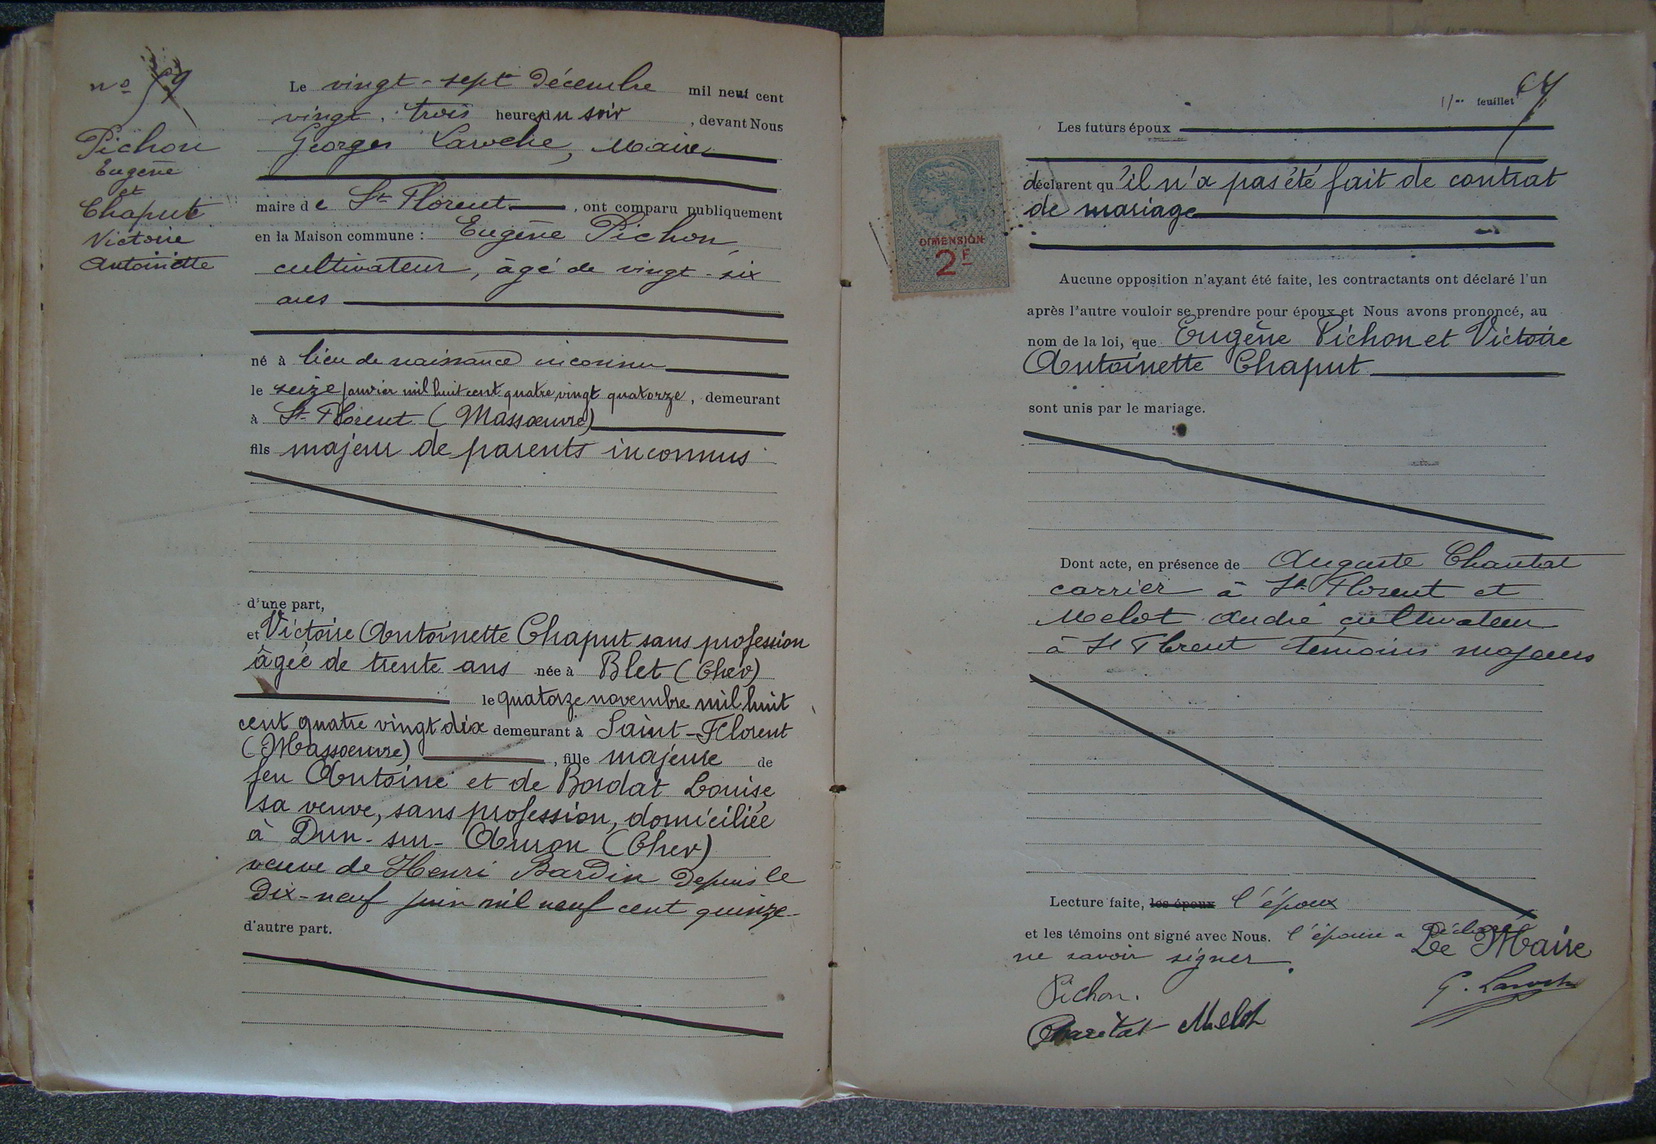 nº
Pichon
Eugène
et
Chaput
Victoire
Antoinette
Le vingt-sept Décembre mil neuf cent
vingt, trois heures du soir, devant Nous
Georges Laroche, Maire
maire de St Florent, ont comparu publiquement
en la Maison commune : Eugène Pichon
cultivateur, âgé de vingt-six
ans
né à lieu de naissance inconnu
le seize janvier mil huit cent quatre vingt quatorze, demeurant
à St Florent (Massoeuvre)
fils majeur de parents inconnus
d'une part,
et Victoire Antoinette Chaput sans profession
âgée de trente ans née à Blet (Cher)
le quatorze novembre mil huit
cent quatre vingt dix demeurant à Saint-Florent
(Massoeuvre), fille majeure de
feu Antoine et de Bordat Louise
sa veuve, sans profession, domiciliée
à Dun-sur-Auron (Cher)
veuve de Henri Bardin depuis le
Dix-neuf juin mil neuf cent quinze-
d'autre part.
feuillet
DIMENSION
2F
Les futurs époux
déclarent qu'il n'a pas été fait de contrat
de mariage
Aucune opposition n'ayant été faite, les contractants ont déclaré l'un
après l'autre vouloir se prendre pour époux et Nous avons prononcé, au
nom de la loi, que Eugène Pichon et Victoire
Antoinette Chaput
sont unis par le mariage.
Dont acte, en présence de Auguste
carrier à St Florent et
Melot André cultivateur
à St Florent témoins majeurs
Lecture faite, les époux l'époux
et les témoins ont signé avec Nous. l'épouse a déclaré
ne savoir signer.
Le Maire
Pichon.
G. Laroche
Melot